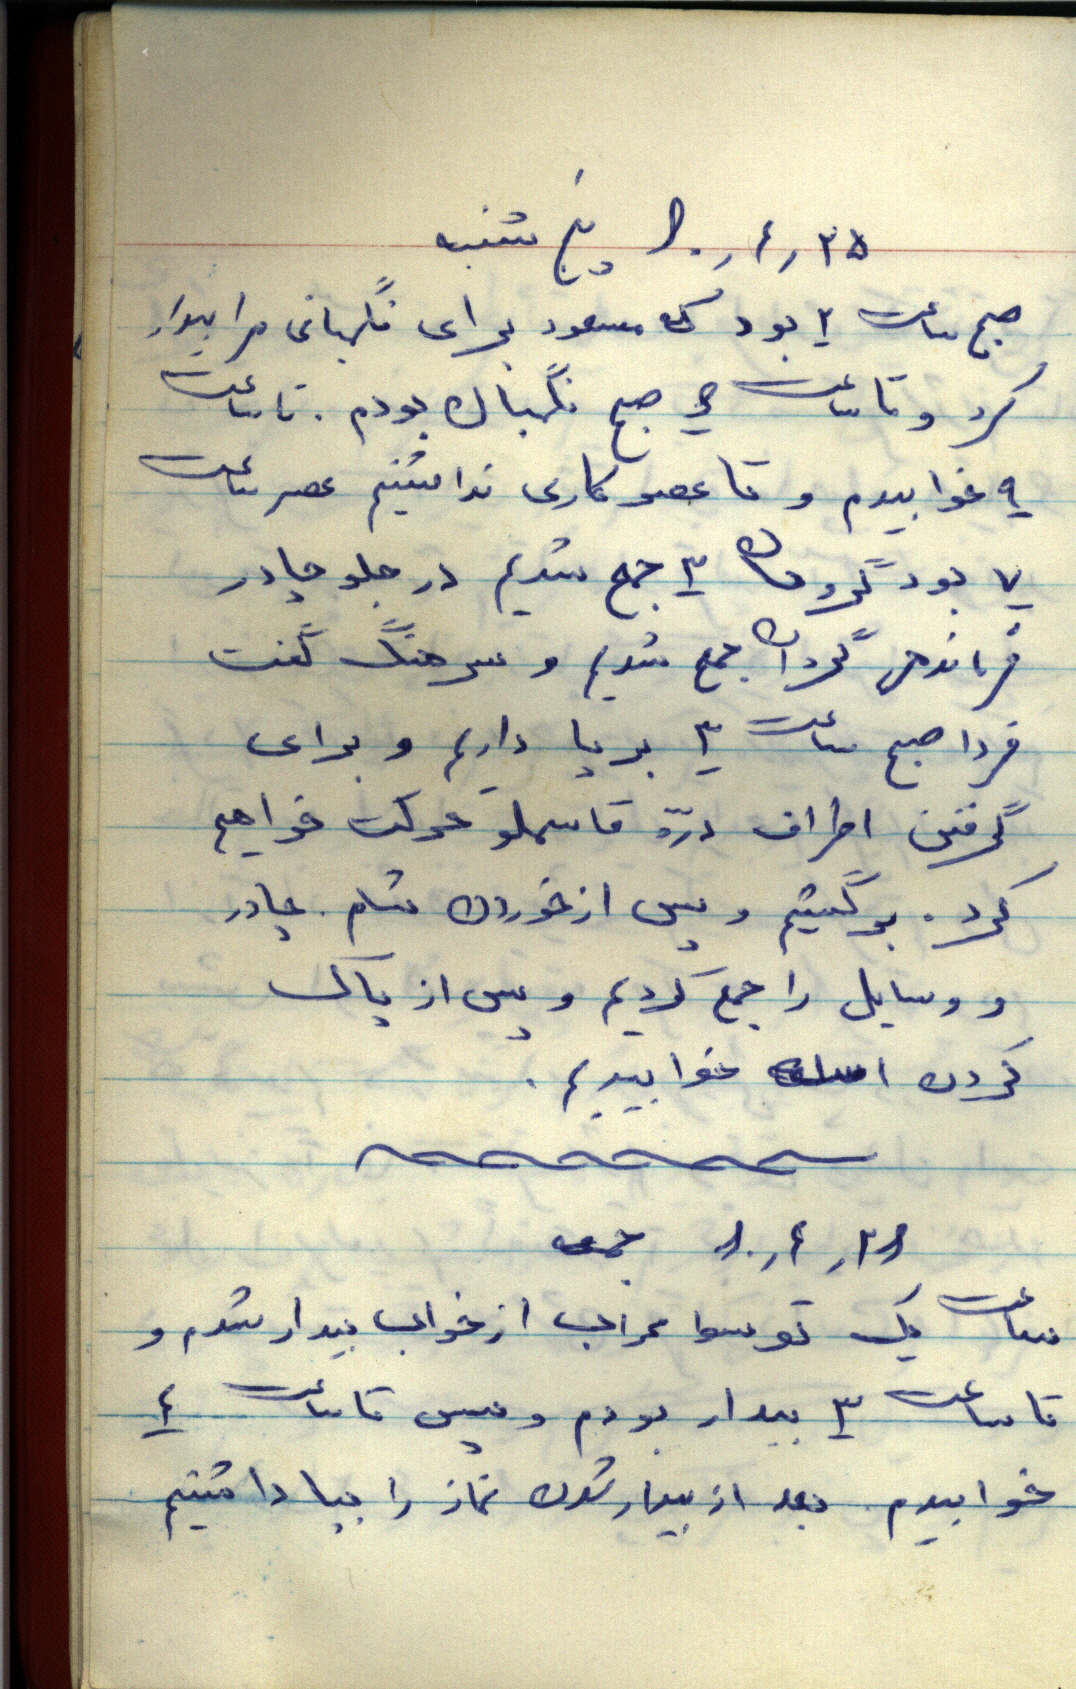 ۲۵ ر ٤ ر ۶۰ پنج شنبه
صبح ساعت ۲ بود که مسعود برای نگهبانی مرا بیدار
کرد و تا ساعت صبح نگهبان بودم . تا ساعت
۹ خوابیدم و تا عصر کاری نداشتیم عصر ساعت
۷ بود گروهان ۳ جمع شدیم در جلو چادر
فرمانده گردان جمع شدیم و سرهنگ گفت
فردا صبح ساعت ۳ برپا داریم و برای
گرفتن اطراف درّه قاسملو حرکت خواهیم
کرد . برگشتیم و پس از خوردن شام . چادر
و وسایل را جمع کردیم و پس از پاک
کردن اسلحه خوابیدیم .
۲۶ ر ٤ ر ۶۰ جمعه
ساعت یک توسط از خواب بیدار شدم و
تا ساعت ۳ بیدار بودم و سپس تا ساعت ٤
خوابیدم . بعد از بیدار شدن نماز را بپا داشتیم